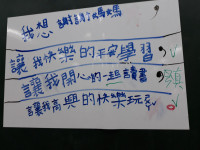 我想謝謝媽媽，
讓我快樂的平安學習，
讓我開心的一起讀書，
讓我高興的快樂玩